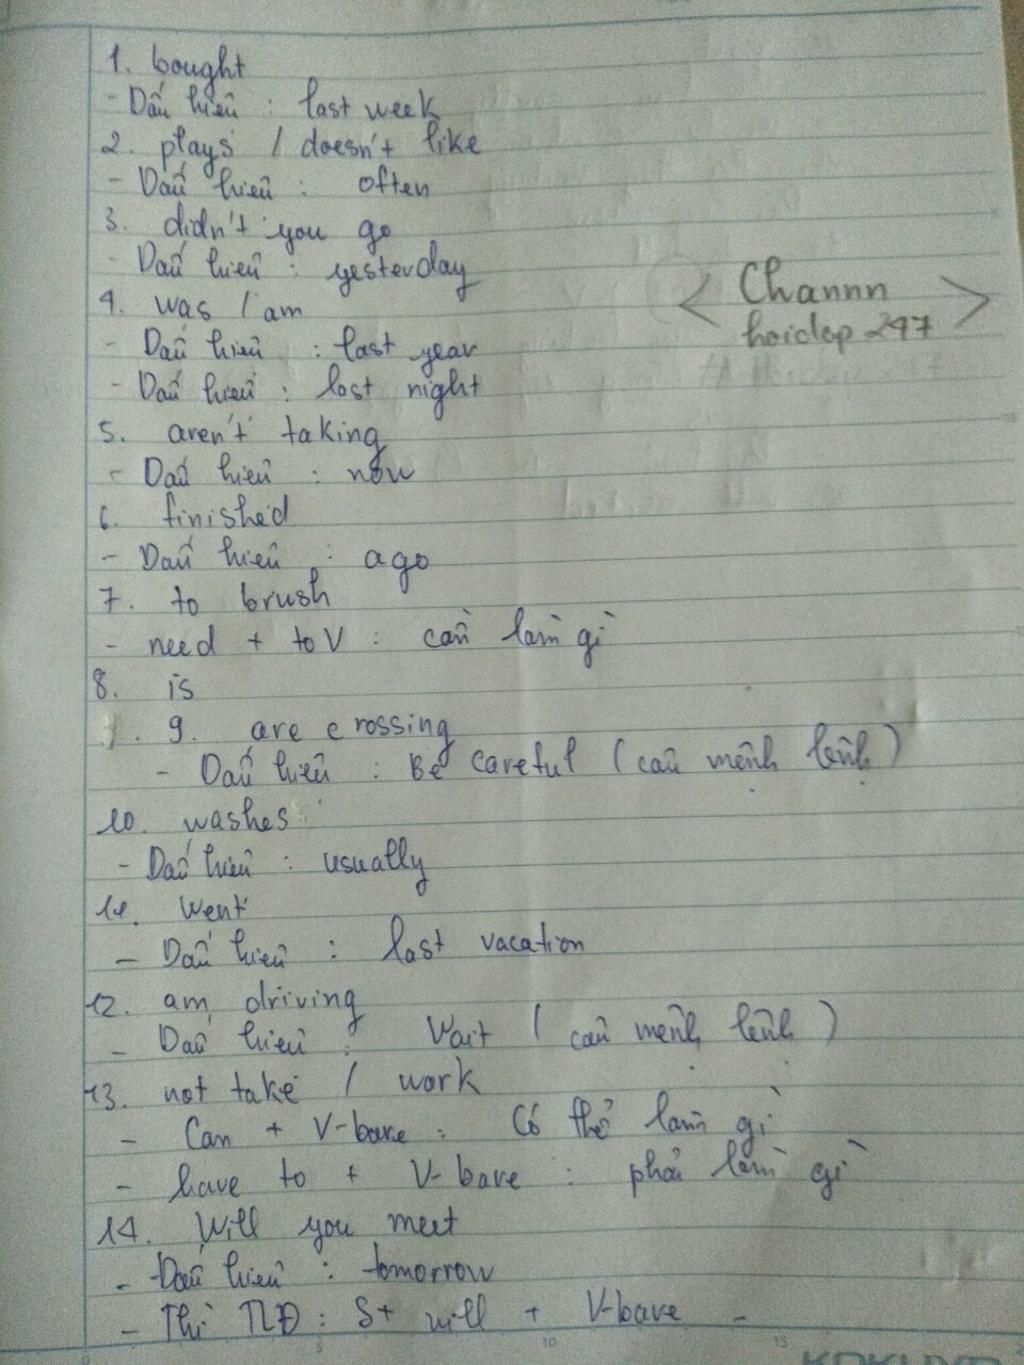 1. bought
- Dấu hiệu : last week
2. plays / doesn't like
- Dấu hiệu : often
3. didn't you go
- Dấu hiệu : yesterday
4. was / am
- Dấu hiệu : last year
- Dấu hiệu : last night
5. aren't taking
- Dấu hiệu : now
6. finished
- Dấu hiệu : ago
7. to brush
- need + to V : cần làm gì
8. is
9. are crossing
- Dấu hiệu : Be careful (câu mệnh lệnh)
10. washes
- Dấu hiệu : usually
11. went
- Dấu hiệu : last vacation
12. am driving
- Dấu hiệu : Wait (câu mệnh lệnh)
13. not take / work
- Can + V-bare : Có thể làm gì
- have to + V-bare : phải làm gì
14. Will you meet
- Dấu hiệu : tomorrow
- Thì TLĐ : S + will + V-bare -
< Channn >
hoidap 247
0 5 10 15
KOKUYO